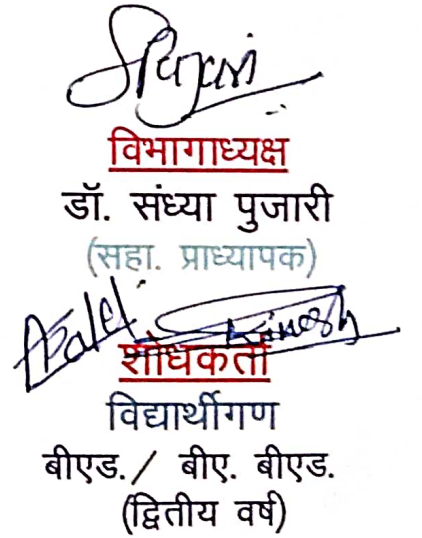 SPujari
विभागाध्यक्ष
डॉ. संध्या पुजारी
(सहा. प्राध्यापक)
शोधकर्ता
विद्यार्थीगण
बीएड./ बीए. बीएड.
(द्वितीय वर्ष)